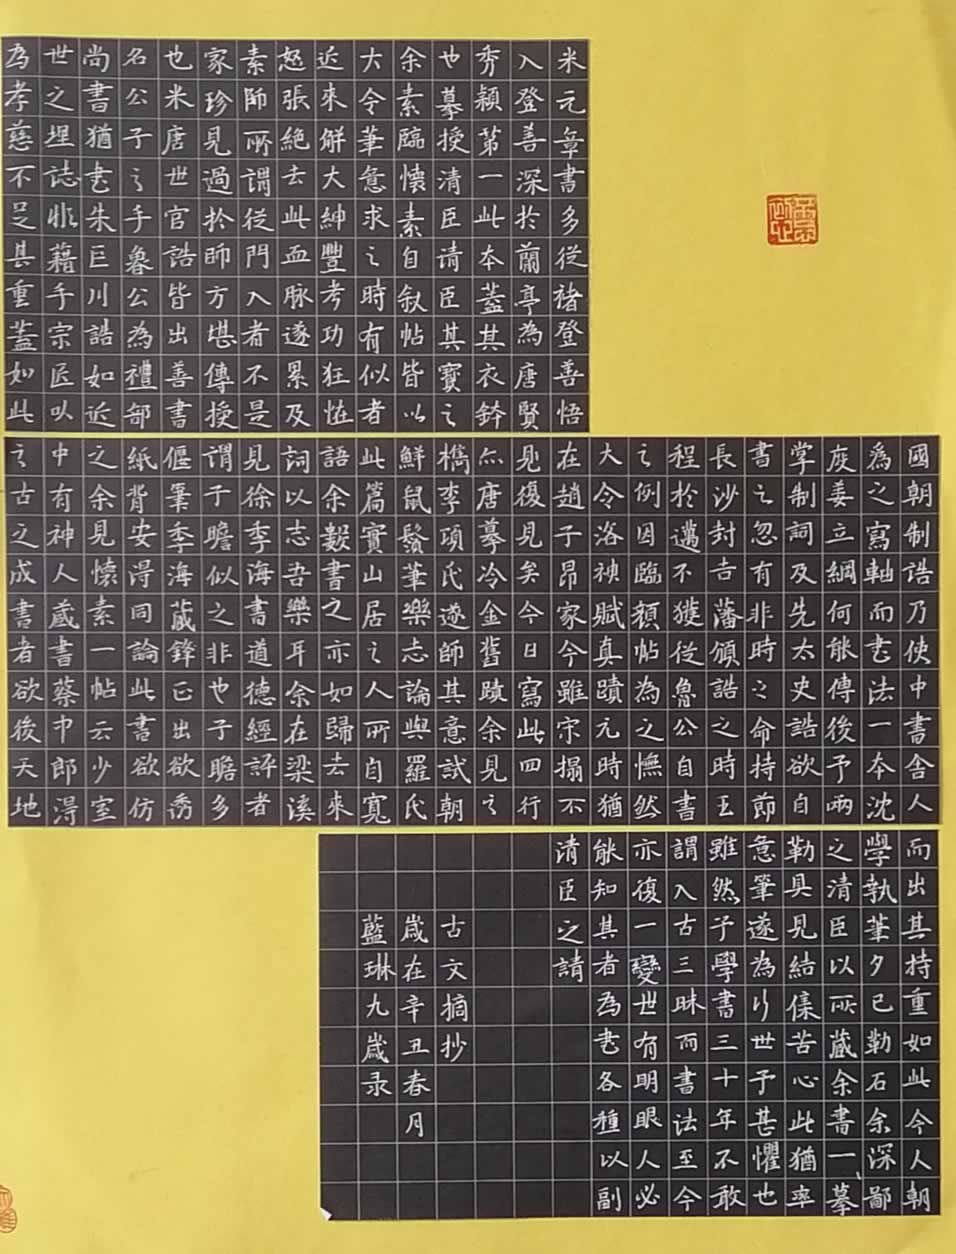 米元章書多從褚登善悟
入登善深於蘭亭為唐賢
秀穎第一此本蓋其衣鉢
也摹授清臣请臣其寶之
余素臨懷素自叙帖皆以
大令筆意求之時有似者
近來解大紳豐考功狂怪
怒張絕去此血脉遂累及
素師所謂從門入者不是
家珍見過於師方堪傳授
也米唐世官誥皆出善書
名公子之手魯公為禮部
尚書猶書朱巨川誥如近
世之埋誌非藉手宗匠以
為孝慈不足其重蓋如此
國朝制誥乃使中書舍人
為之寫軸而書法一本沈
度姜立綱何能傳後予兩
掌制詞及先太史誥欲自
書之忽有非時之命持節
長沙封吉藩頒誥之時王
程於邁不獲從魯公自書
之例因臨顏帖為之憮然
大令洛神賦真蹟元時猶
在趙子昂家今雖宋搨不
見復見矣今日寫此四行
亦唐摹冷金舊蹟余見之
檇李項氏遂師其意試朝
鮮鼠鬚筆樂志論與羅氏
此篇實山居之人所自寬
語余數書之亦如歸去來
詞以志吾樂耳余在梁溪
見徐季海書道德經評者
謂子瞻似之非也子瞻多
偃筆季海藏鋒正出欲诱
紙背安得同論此書欲仿
之余見懷素一帖云少室
中有神人藏書蔡中郎得
之古之成書者欲後天地
而出其持重如此今人朝
學執筆夕已勒石余深鄙
之清臣以所藏余書一、摹
勒具見結苦心此猶率
意筆遂為行世予甚懼也
雖然予學書三十年不敢
謂入古三昧而書法至今
亦復一變世有明眼人必
能知其者為書各種以副
清臣之請
古文摘抄
歲在辛丑春月
藍琳九歲录